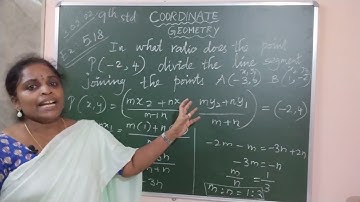 9th std
COORDINATE
GEOMETRY
5.18.
In what ratio does the point
P(-2, 4) divide the line segment
joining the points A(-3, 6) B(1, -2)
P(x, y) = (mx2 + nx1 / m+n , my2 + ny1 / m+n) = (-2, 4)
m(1) + n
-3n
-2m - m = -3n + 2n
-3m = -n
m/n = 1/3
m:n = 1:3